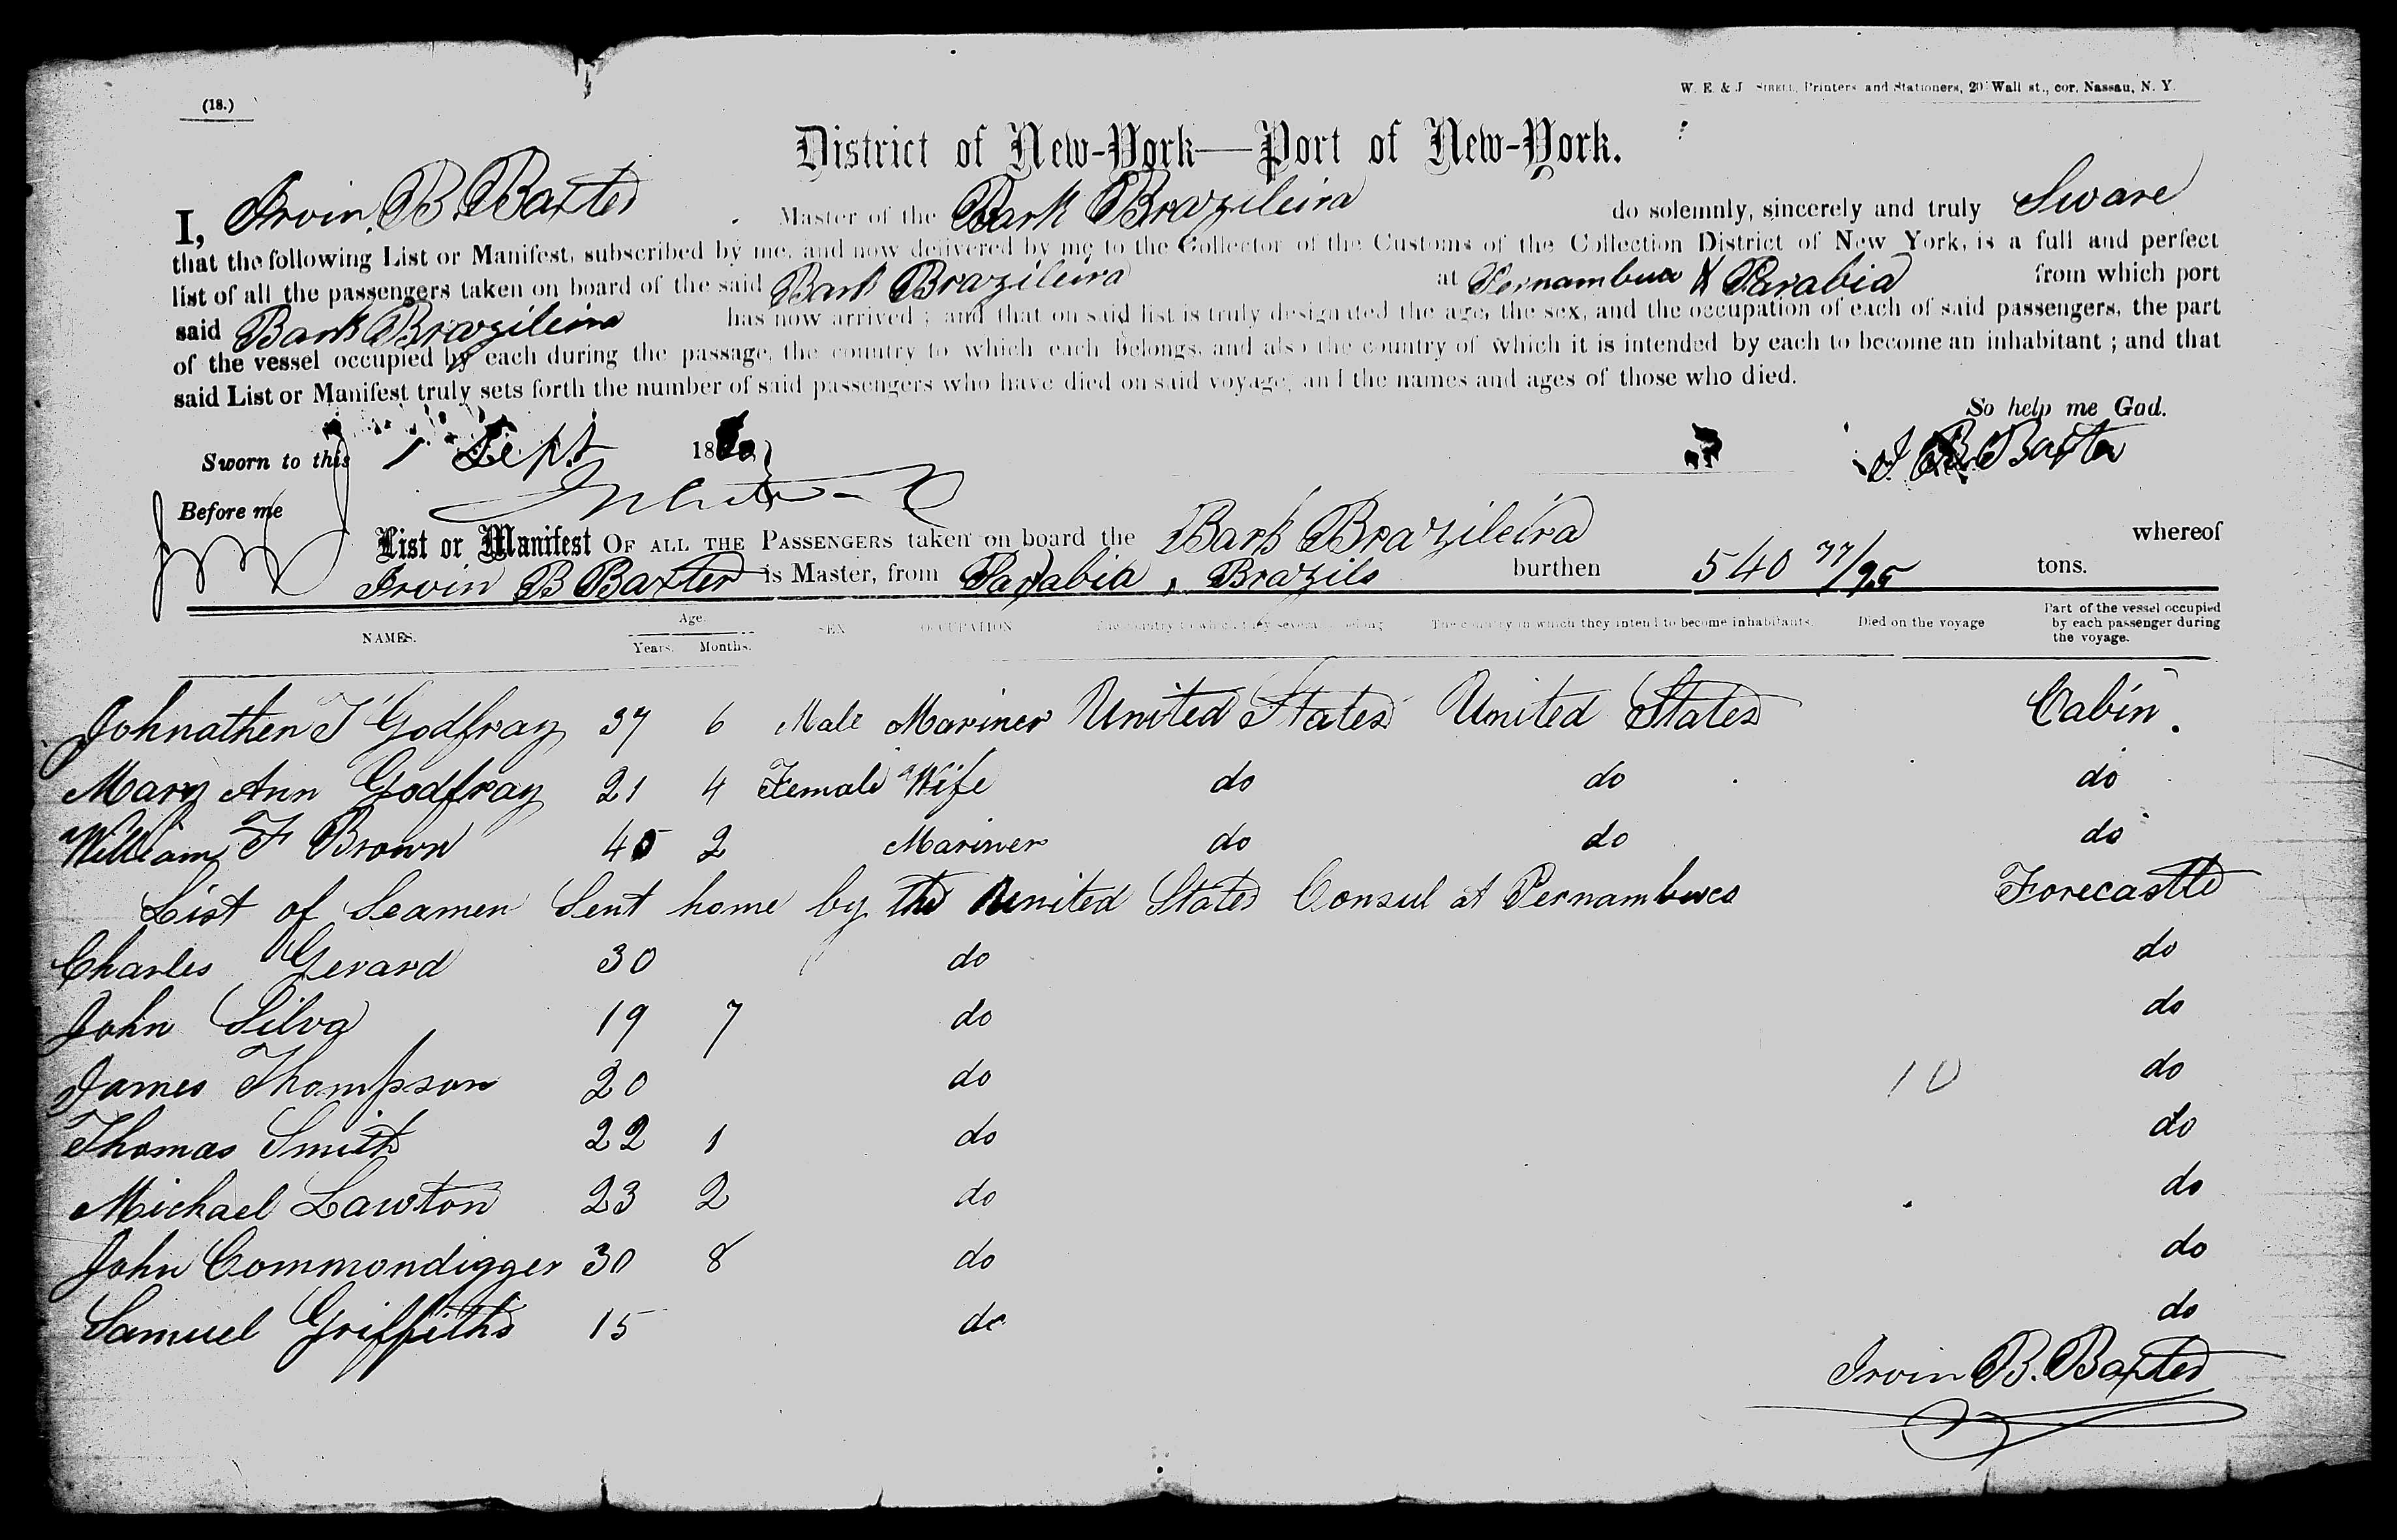 (18.)
W. E. & J. SIBELL, Printers and Stationers, 20 Wall st., cor. Nassau, N. Y.
District of New-York—Port of New-York.
I, Irvin. B. Baxter Master of the Bark Brazileira do solemnly, sincerely and truly Sware
that the following List or Manifest, subscribed by me, and now delivered by me to the Collector of the Customs of the Collection District of New York, is a full and perfect
list of all the passengers taken on board of the said Bark Brazileira at Pernambuco & Parabia from which port
said Bark Brazileira has now arrived ; and that on said list is truly designated the age, the sex, and the occupation of each of said passengers, the part
of the vessel occupied by each during the passage, the country to which each belongs, and also the country of which it is intended by each to become an inhabitant ; and that
said List or Manifest truly sets forth the number of said passengers who have died on said voyage, and the names and ages of those who died.
So help me God.
Sworn to this 1 Sept 18 I. B. Baxter
Before me
List or Manifest OF ALL THE PASSENGERS taken on board the Bark Brazileira whereof
Irvin B Baxter is Master, from Parabia, Brazils burthen 540 77/95 tons.
NAMES. Age. Years. Months. SEX OCCUPATION The country to which they severally belong The country in which they intend to become inhabitants. Died on the voyage Part of the vessel occupied by each passenger during the voyage.
Johnathen T Godfray 37 6 Male Mariner United States United States Cabin.
Mary Ann Godfray 21 4 Female Wife do do do
William F Brown 45 2 Mariner do do do
List of Seamen Sent home by the United States Consul at Pernambuco Forecastle
Charles Gerard 30 do do
John Silva 19 7 do do
James Thompson 20 do 10 do
Thomas Smith 22 1 do do
Michael Lawton 23 2 do do
John Commondigger 30 8 do do
Samuel Griffiths 15 do do
Irvin B. Baxter